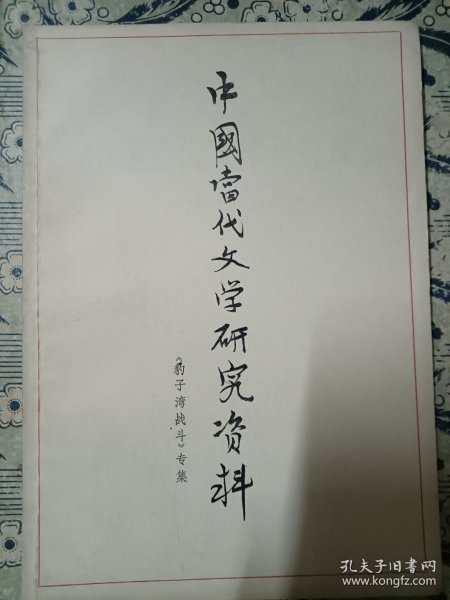 中國當代文学研究资料
《豹子湾战斗》专集
孔夫子旧书网
www.kongfz.com